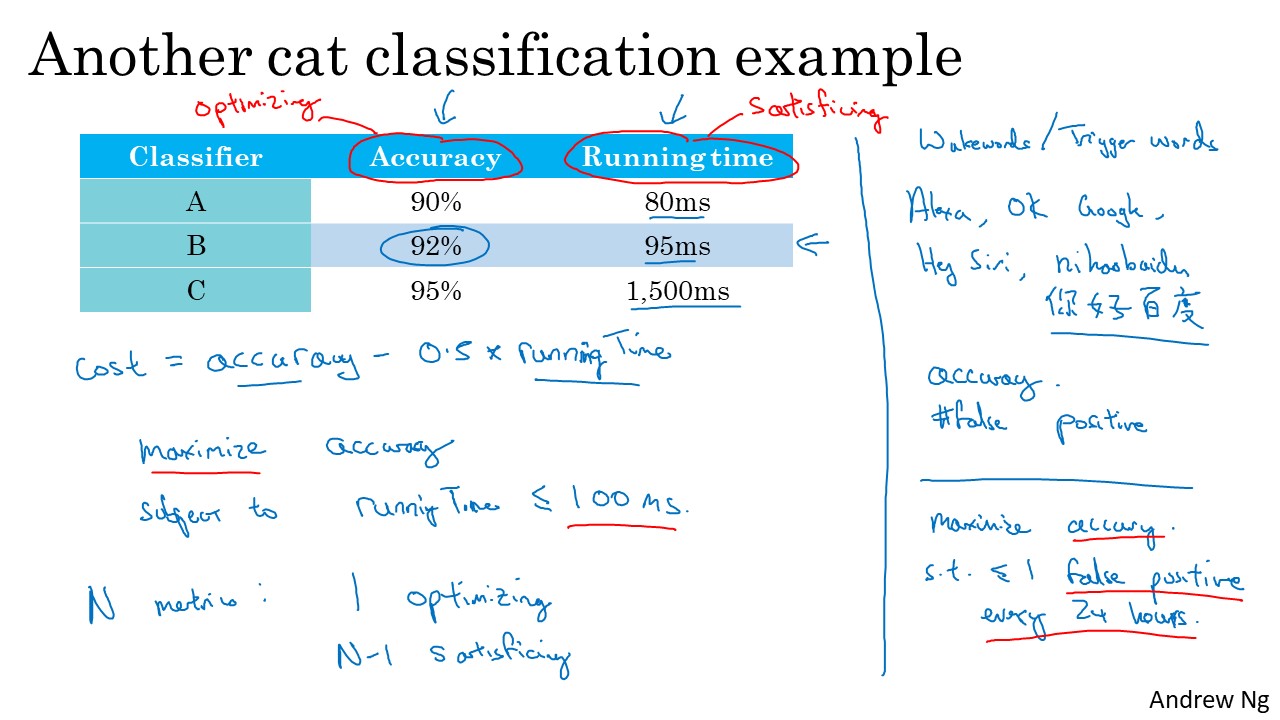 Another cat classification example
optimizing
Satisficing
Classifier Accuracy Running time
A 90% 80ms
B 92% 95ms
C 95% 1,500ms
cost = accuracy - 0.5 x runningTime
maximize accuracy
subject to runningTime ≤ 100 ms.
N metrics: 1 optimizing
N-1 satisficing
Wakewords / Trigger words
Alexa, OK Google,
Hey Siri, nihaobaidu
你好百度
accuracy.
#false positive
maximize accuracy.
s.t. ≤ 1 false positive
every 24 hours.
Andrew Ng